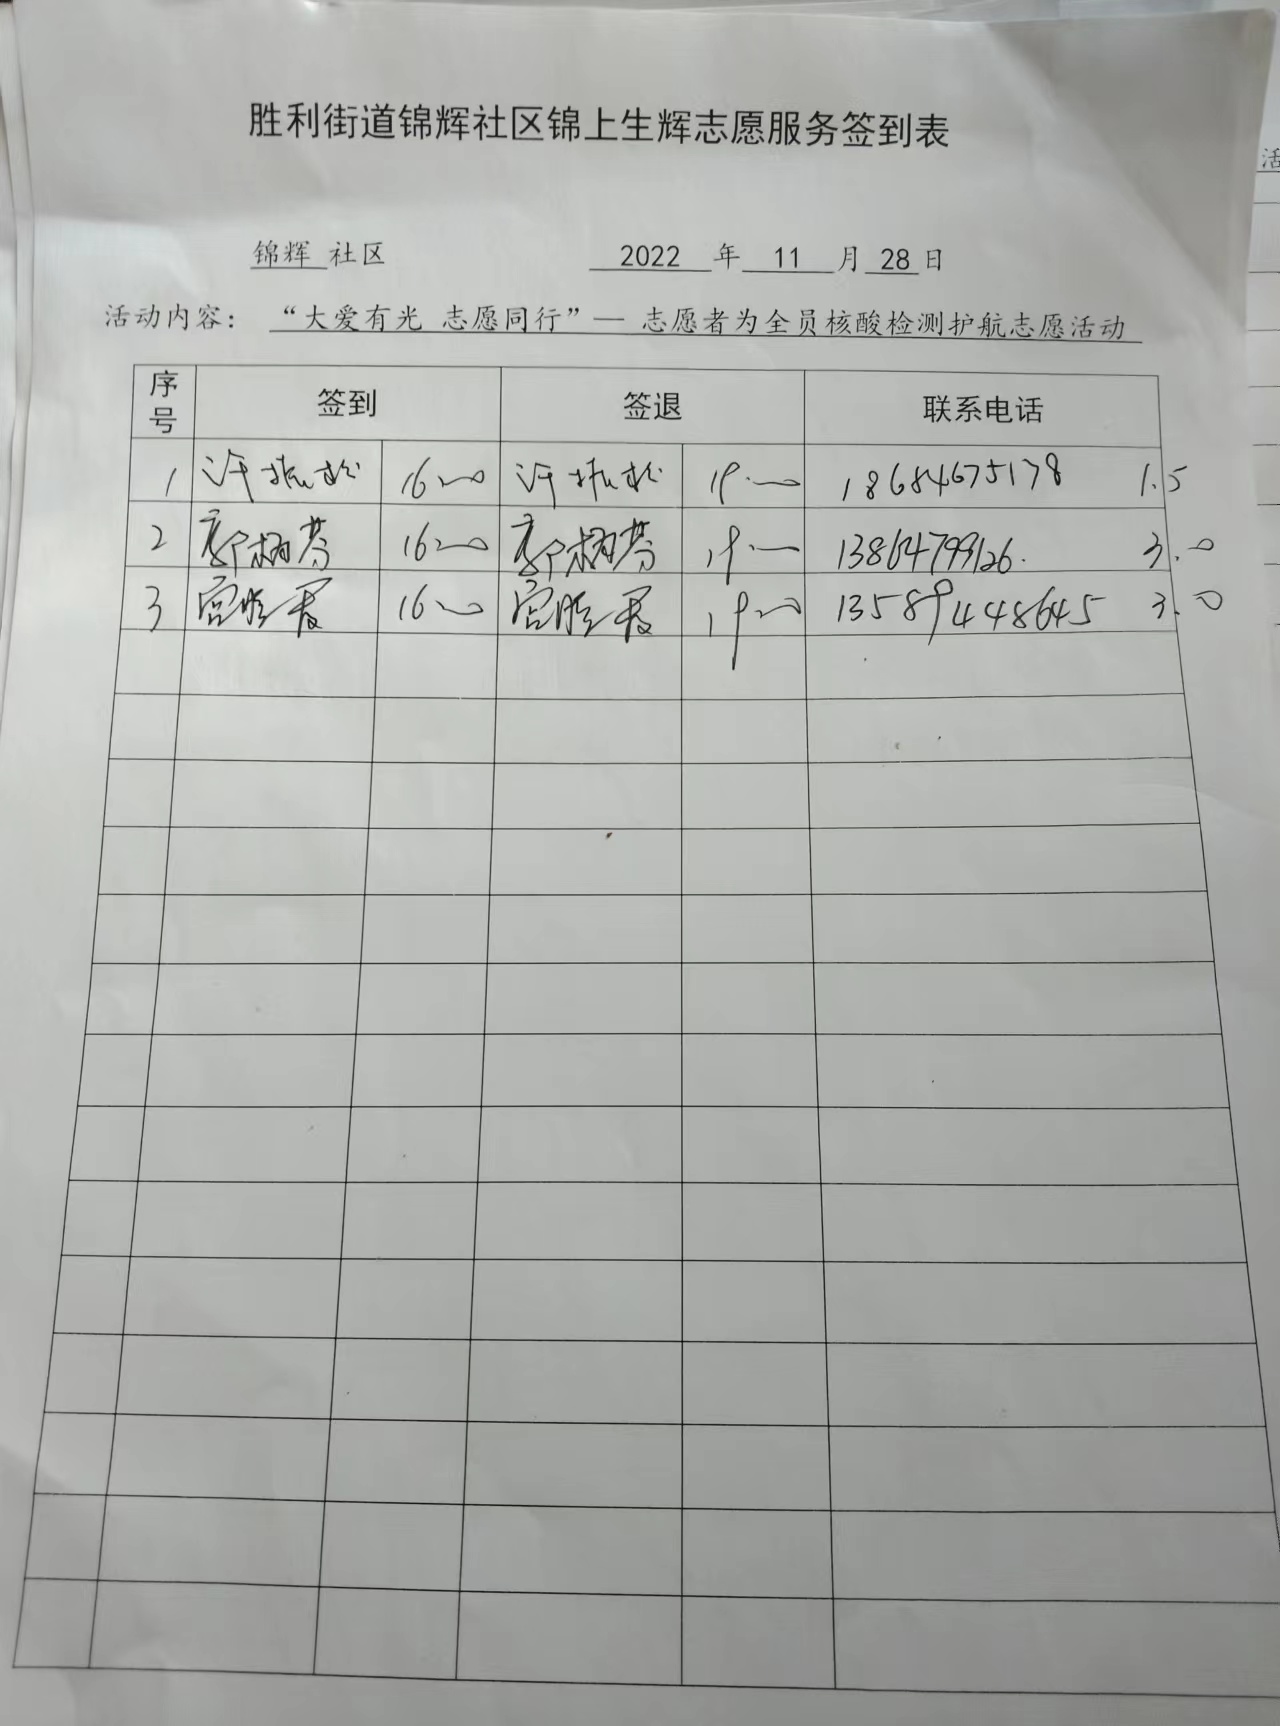 胜利街道锦辉社区锦上生辉志愿服务签到表
锦辉 社区 2022 年 11 月 28 日
活动内容： “大爱有光 志愿同行”— 志愿者为全员核酸检测护航志愿活动
序号 签到 签退 联系电话
1 许振松 16:00 许振松 19:00 18684675178 1.5
2 16:00 19:00 13864799126. 3.0
3 宫晓君 16:00 宫晓君 19:00 13589448645 3.0
活